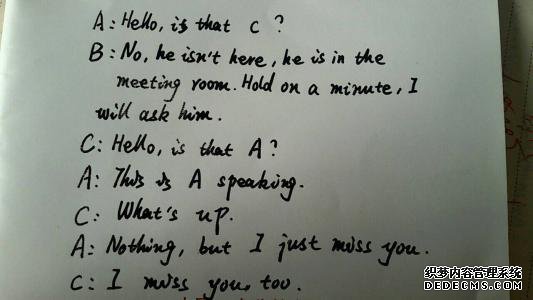 A: Hello, is that C?
B: No, he isn't here, he is in the
meeting room. Hold on a minute, I
will ask him.
C: Hello, is that A?
A: This is A speaking.
C: What's up.
A: Nothing, but I just miss you.
C: I miss you, too.
织梦内容管理系统
DEDECMS.COM